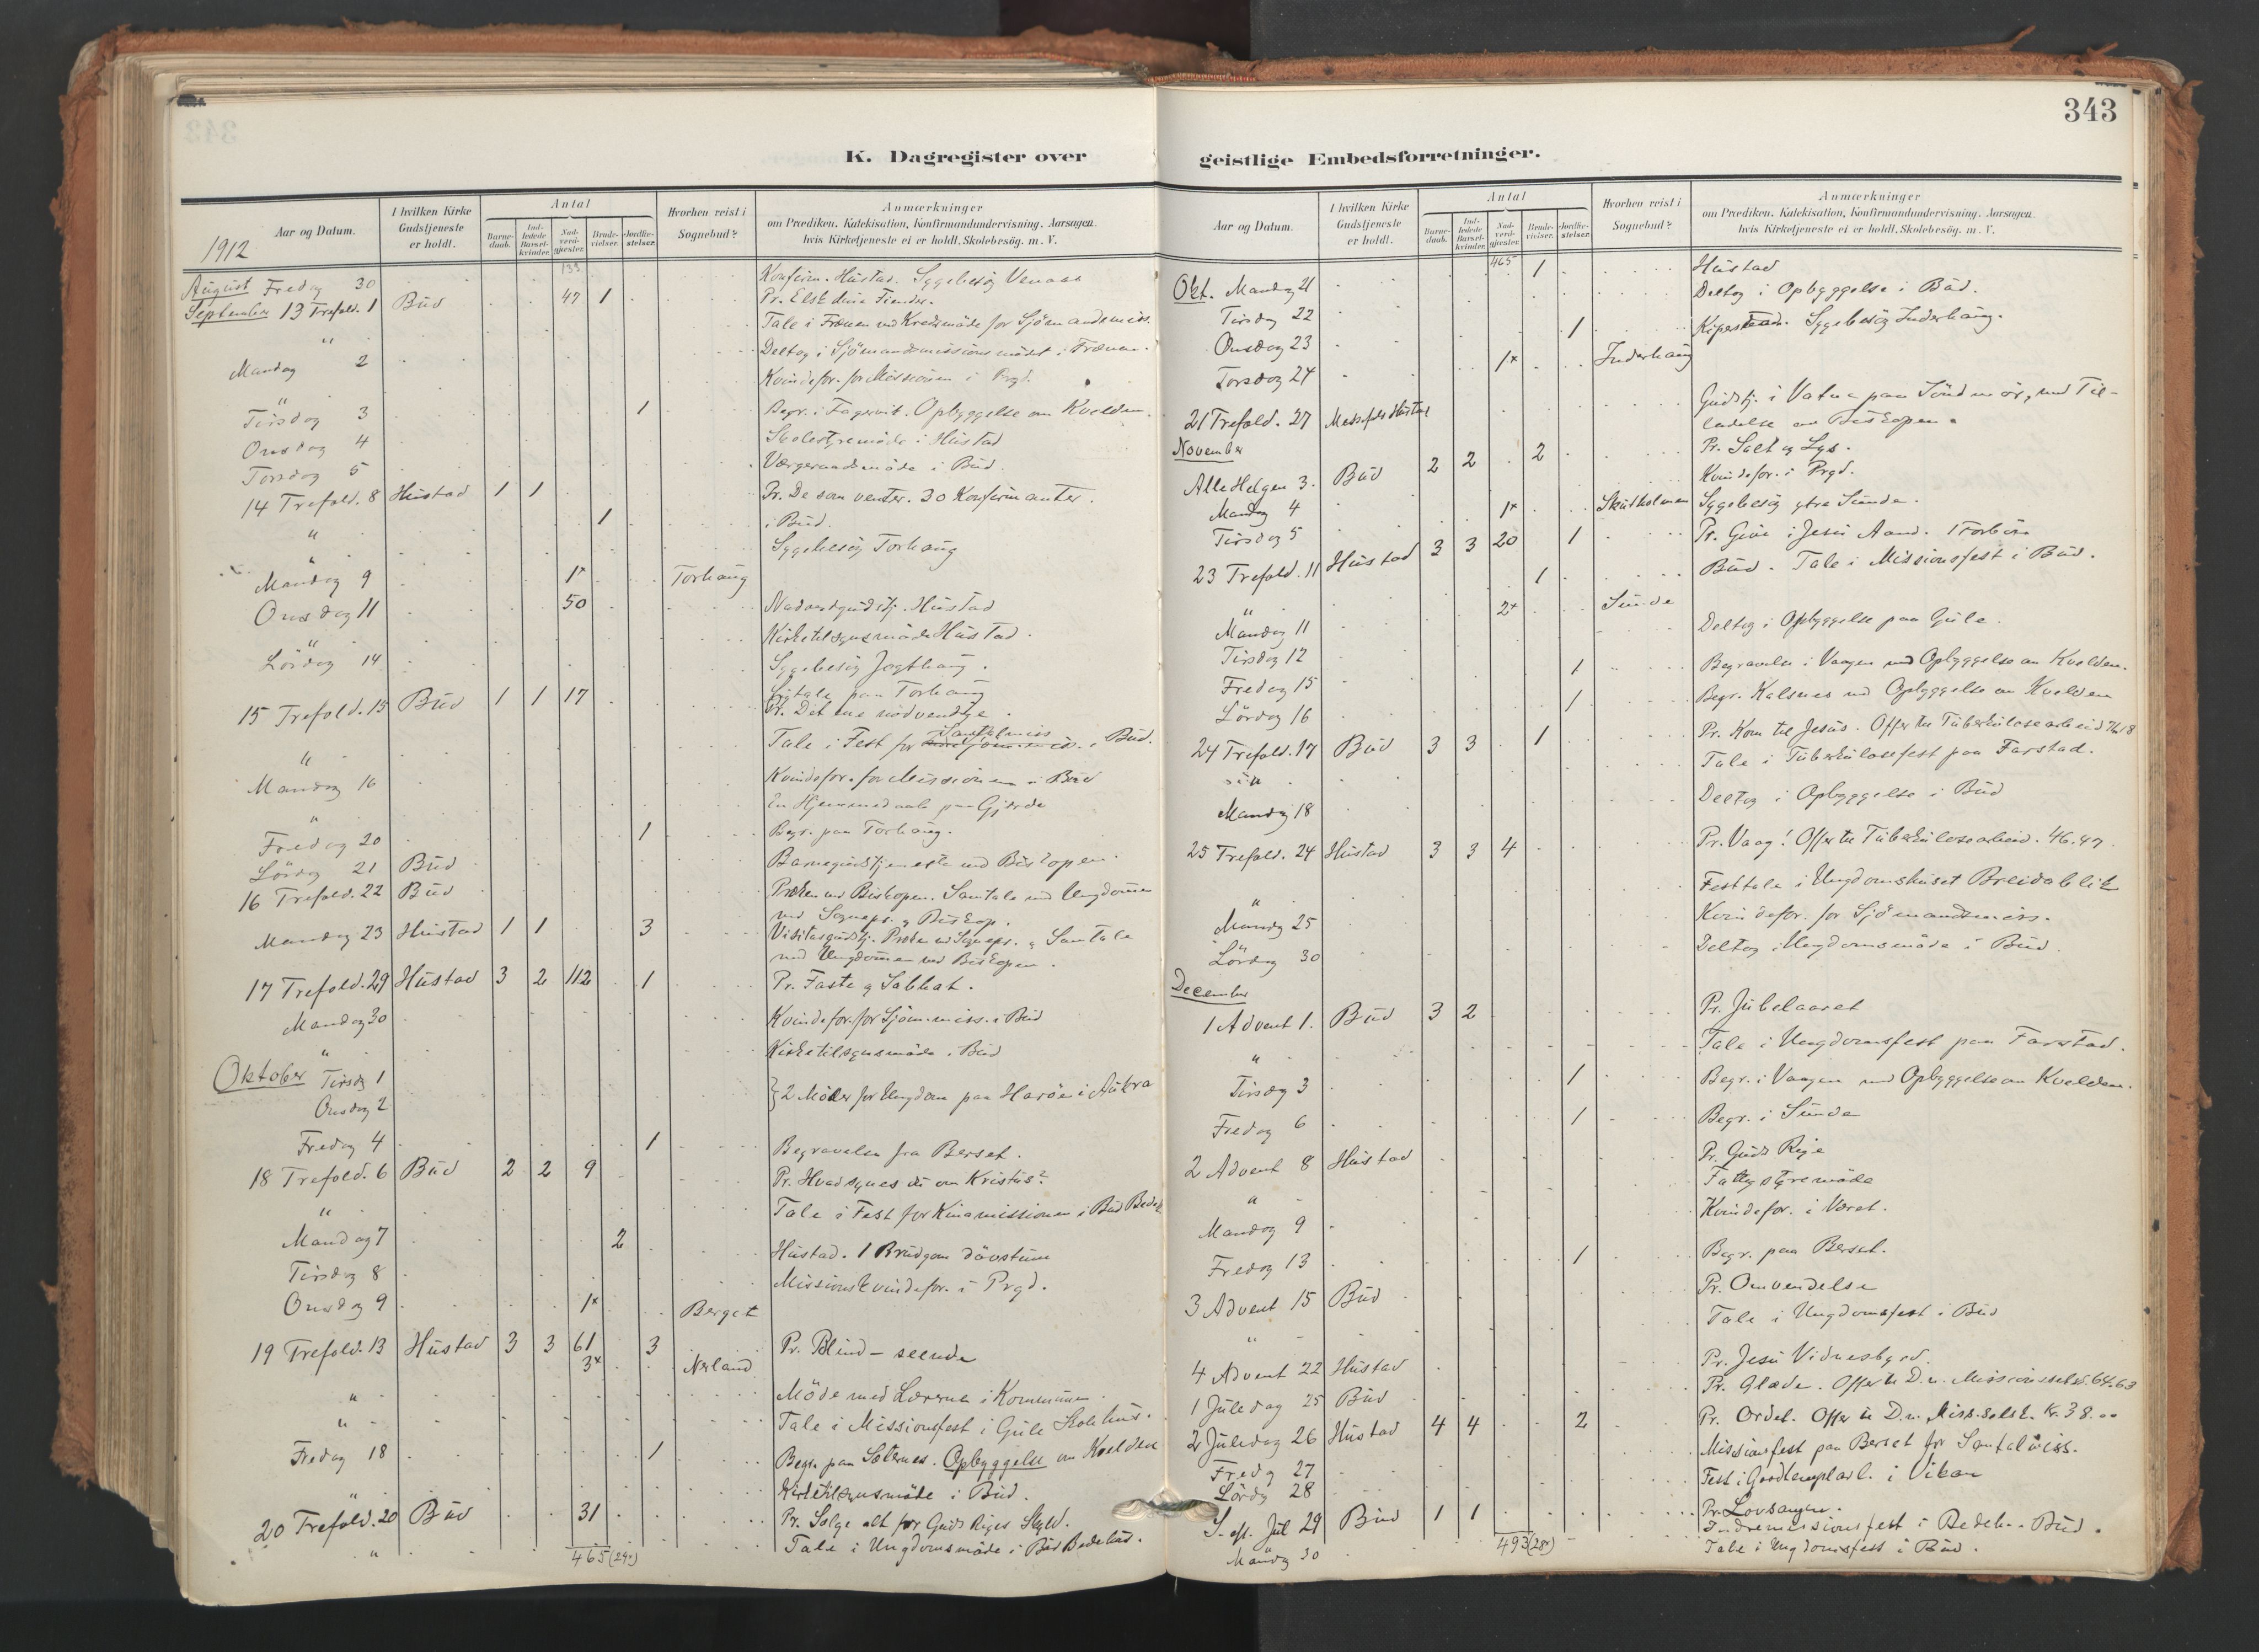 343
K. Dagregister over
geistlige Embedsforretninger.
1912
Aar og Datum.
I hvilken Kirke Gudstjeneste er holdt.
Antal
Barne-daab.
Ind-ledede Barsel-kvinder.
Nad-verd-gjester.
Brude-vielser.
Jordfæ-stelser.
Hvorhen reist i Sognebud?
Anmærkninger
om Prædiken. Katekisation, Konfirmandundervisning. Aarsagen.
hvis Kirketjeneste ei er holdt. Skolebesøg. m. V.
133
August Fredag 30 Konfirm. Hustad. Sygebesøg Venaas
September 13 Trefold. 1 Bud 47 1 Pr. Elsk dine Fiender.
" Tale i Frænen ved Kredsmöde for Sjömandsmiss.
Mandag 2 Deltog i Sjömandsmissionsmödet i Frænen.
" Kvindefor. for Missionen i Prgd.
Tirsdag 3 1 Begr. i Fagervik. Opbyggelse om Kvelden.
Onsdag 4 Skolestyremöde i Hustad
Torsdag 5 Værgeraadsmöde i Bud.
14 Trefold. 8 Hustad 1 1 Pr. De som venter. 30 Konfirmanter.
" 1 i Bud.
" Sygebesøg Torhaug
Mandag 9 1x Torhaug
Onsdag 11 50 Nadverdgudstj. Hustad
" Kirketilsynsmöde Hustad.
Lördag 14 Sygebesøg Jogthaug.
Ligtale paa Torhaug
15 Trefold. 15 Bud 1 1 17 Pr. Det ene nödvendige.
" Tale i Fest for Santalmiss. i Bud.
Mandag 16 Kvindefor. for Missionen i Bud
" En Hjemmedaab paa Gjerde
Fredag 20 1 Begr. paa Torhaug.
Lördag 21 Bud Barnegudstjeneste ved Biskopen.
16 Trefold. 22 Bud Præken ved Biskopen. Samtale med Ungdommen
ved Sognepr. og Biskop.
Mandag 23 Hustad 1 1 3 Visitasgudstj. Præken ved Sognepr. og Samtale
med Ungdommen ved Biskopen.
17 Trefold. 29 Hustad 3 2 112 1 Pr. Faste og Sabbat.
Mandag 30 Kvindefor. for Sjöm.miss. i Bud
" Kirketilsynsmöde i Bud
Oktober Tirsdag 1
Onsdag 2 } 2 Möder for Ungdom paa Haröen i Aukra
Fredag 4 1 Begravelse fra Berset.
18 Trefold. 6 Bud 2 2 9 Pr. Hvad synes du om Kristus?
" Tale i Fest for Kinamissionen i Bud Bedeh.
Mandag 7 2 Hustad. 1 Brudgom dövstum
Tirsdag 8 Missionskvindefor. i Prgd.
Onsdag 9 1x Berget
19 Trefold. 13 Hustad 3 3 61 3 Pr. Blind – seende
3x Nerland
" Möde med Lærerne i Kommunen.
" Tale i Missionsfest i Gule Skolehus.
Fredag 18 1 Begr. paa Sæternes. Opbyggelse om Kvelden
" Kirketilsynsmöde i Bud.
20 Trefold. 20 Bud 31 Pr. Sælge alt for Guds Riges Skyld.
" Tale i Ungdomsmöde i Bud Bedehus.
465 (24x)
Aar og Datum.
I hvilken Kirke Gudstjeneste er holdt.
Antal
Barne-daab.
Ind-ledede Barsel-kvinder.
Nad-verd-gjester.
Brude-vielser.
Jordfæ-stelser.
Hvorhen reist i Sognebud?
Anmærkninger
om Prædiken. Katekisation, Konfirmandundervisning. Aarsagen.
hvis Kirketjeneste ei er holdt. Skolebesøg. m. V.
465
Okt. Mandag 21 1 Hustad
Tirsdag 22 Deltog i Opbyggelse i Bud.
Onsdag 23 1 Sygebesøg Inderhaug.
Torsdag 24 1x Inderhaug
21 Trefold. 27 Messefald Hustad Gudstj. i Vatne paa Söndmör, med Til-
ladelse av Biskopen.
November
Alle Helgen 3. Bud 2 2 2 Pr. Salt og Lys.
Mandag 4 Kvindefor. i Prgd.
Tirsdag 5 1x Skutholmen Sygebesøg ytre Sunde.
23 Trefold. 11 Hustad 3 3 20 1 Pr. Give i Jesu Aand. 1 Forbön
" 1 Bud. Tale i Missionsfest i Bud.
Mandag 11 2x Sunde
Tirsdag 12 Deltog i Opbyggelse paa Gule.
Fredag 15 1 Begravelse i Vaagen med Opbyggelse om Kvelden.
Lördag 16 1 Begr. Kalsnes med Opbyggelse om Kvelden
24 Trefold. 17 Bud 3 3 1 Pr. Kom til Jesus. Offer til Tuberkulosearbeid
" Tale i Tuberkulosefest paa Farstad.
Mandag 18 Deltog i Opbyggelse i Bud
25 Trefold. 24 Hustad 3 3 4 Pr. Vaag! Offer til Tuberkulosearbeid. 46.47
" Festtale i Ungdomshuset Breidablik
Mandag 25 Kvindefor. for Sjömandsmiss.
Lördag 30 Deltog i Ungdomsmöde i Bud.
December
1 Advent 1. Bud 3 2 Pr. Jubelaaret
" Tale i Ungdomsfest paa Farstad.
Tirsdag 3 1 Begr. i Vaagen med Opbyggelse om Kvelden.
Fredag 6 1 Begr. i Sunde
2 Advent 8 Hustad Pr. Guds Rige
" Fattigstyremöde
Mandag 9 Kvindefor. i Været.
Fredag 13 1 Begr. paa Berset.
3 Advent 15 Bud Pr. Omvendelse
" Tale i Ungdomsfest i Bud
4 Advent 22 Hustad Pr. Jesu Vidnesbyrd.
1 Juledag 25 Bud Pr. Glæde. Offer til D. n. Missionsselsk. 64.63
2 Juledag 26 Hustad 4 4 2 Pr. Ordet. Offer til D. n. Miss.selsk. Kr. 38.00
Fredag 27 Missionsfest paa Berset for Santalmiss.
Lördag 28 Fest i Goodtemplarl. i Vikan
S. ef. Jul 29 Bud 1 1 Pr. Lovsangen.
Indremissionsfest i Bedeh. Bud.
Mandag 30 Tale i Ungdomsfest i Bud.
493 (28x)